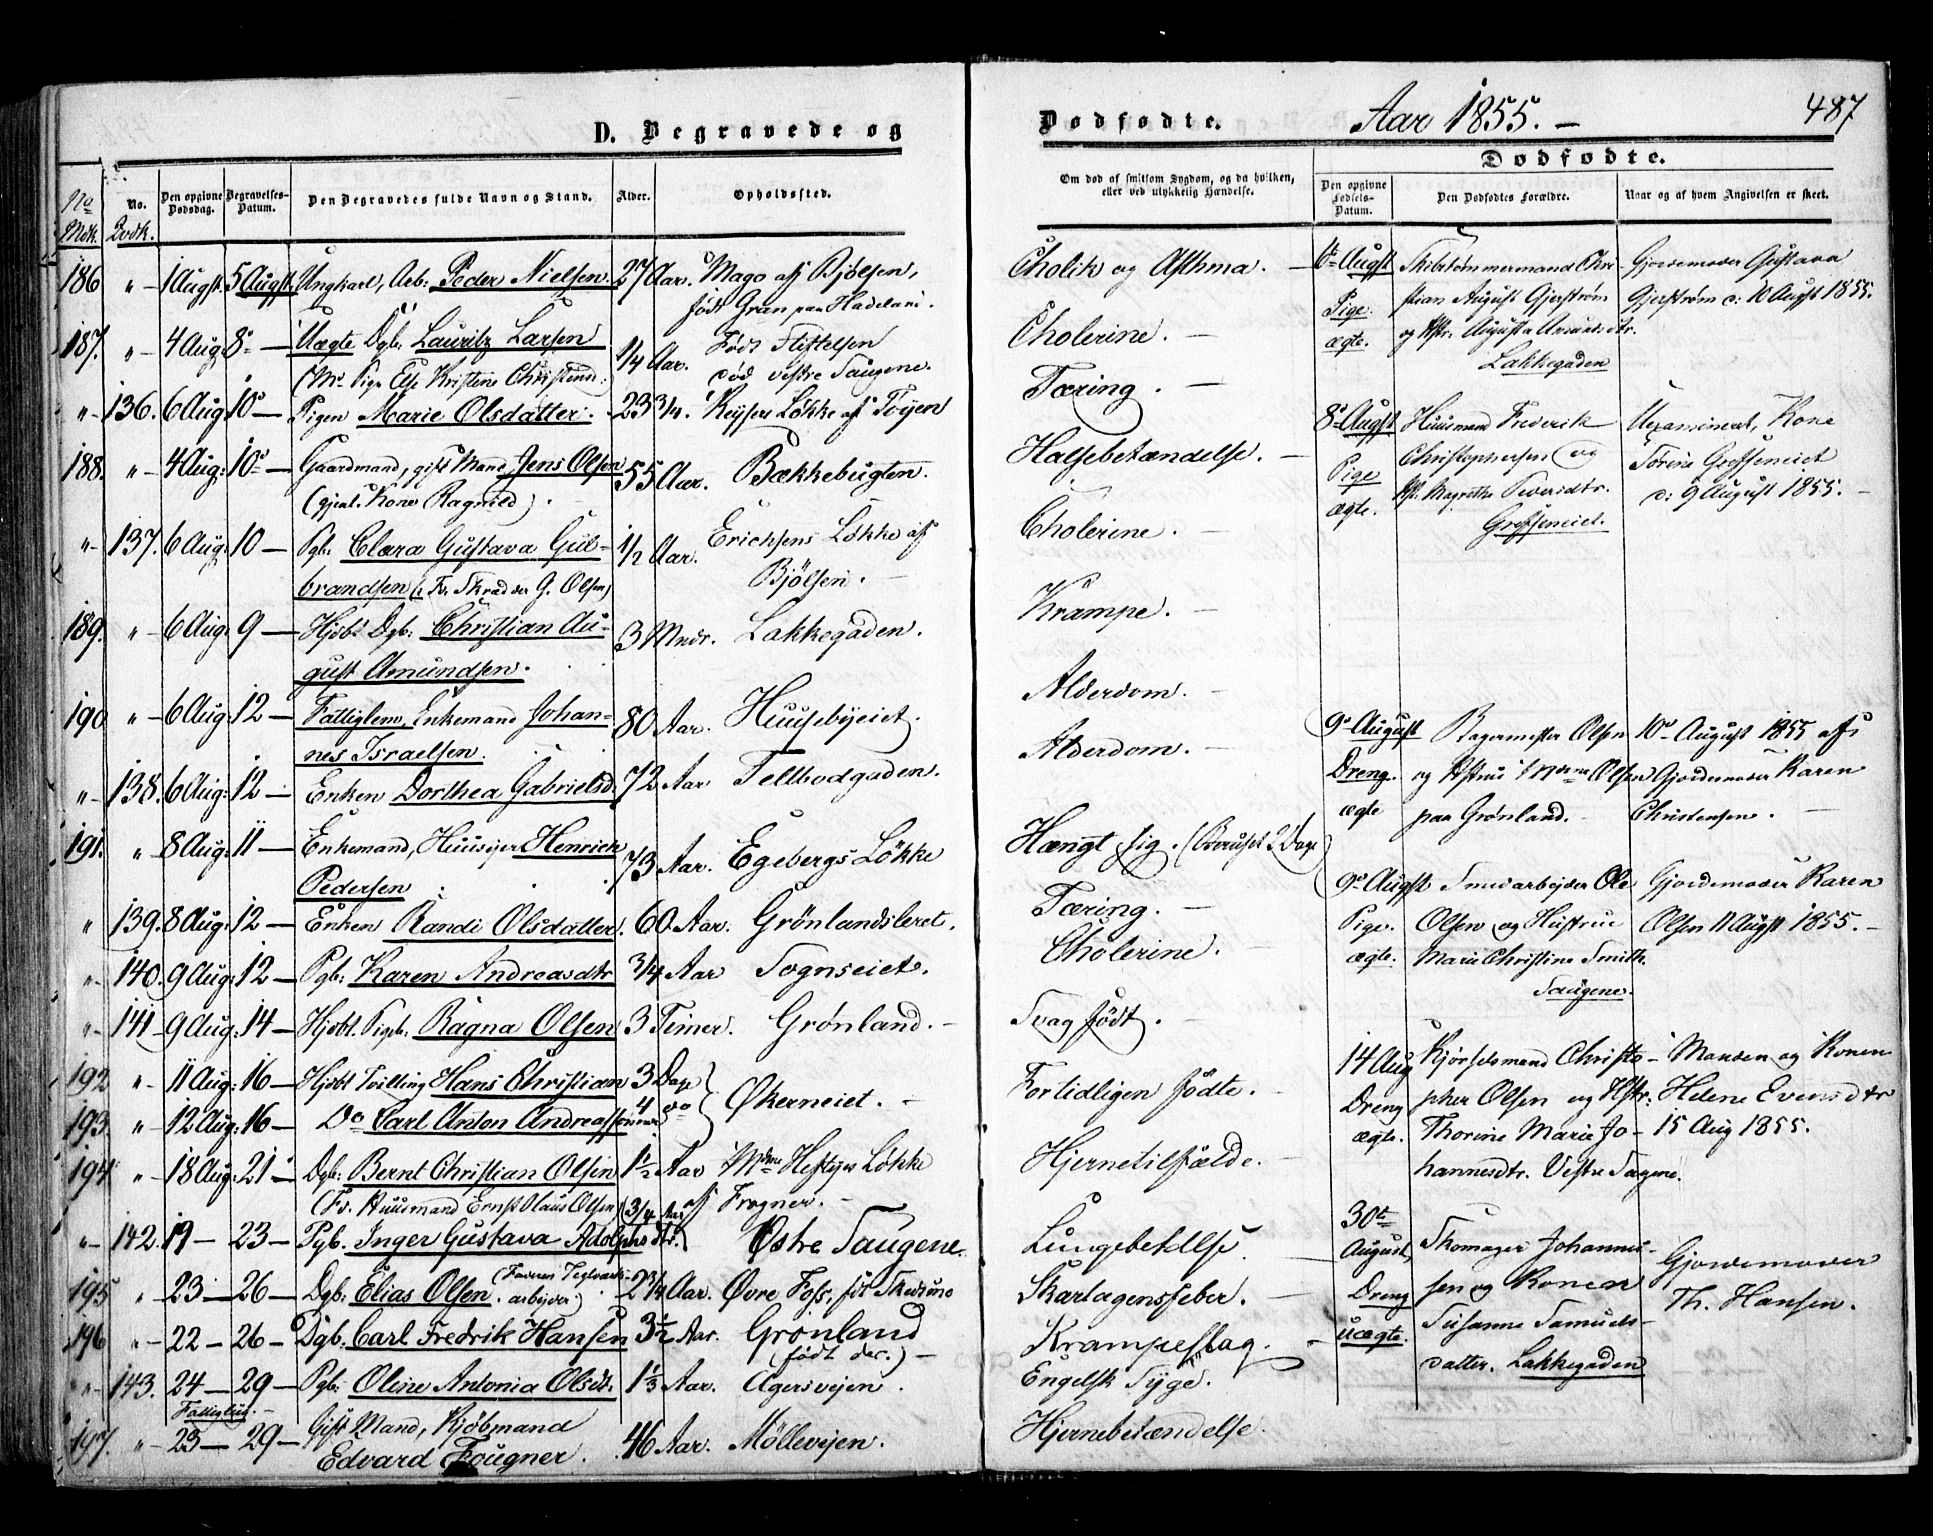 D. Begravede og
No Mdk.
No. Qvdk.
Den opgivne Dødsdag.
Begravelses-Datum.
Den Begravedes fulde Navn og Stand.
Alder.
Opholdssted.
186 " 1 Augst. 5 Augst. Ungkarl, Arb: Peder Nielsen. 27 Aar. Mago af Bjølsen,
født Gran paa Hadeland.
187. " 4 Aug 8de Uægte Dgb: Lauritz Larsen 1/4 Aar. Født Stiftelsen
(Mr. Pige Else Kristine Christensd:) død vestre Saugene.
" 136. 6 Aug 10de Pigen Marie Olsdatter. 23 3/4. Keysers Løkke af Tøÿen
188. " 4 Aug: 10de Gaardmand, gift Mand Jens Olsen 55 Aar. Bækkebugten.
(gjenl. Kone Ragnild).
" 137. 6 Aug: 10 Pgb: Clara Gustava Gul- 1/2 Aar. Ericksens Løkke af
brandsen (: Fr. Skrædder G. Olsen) Bjølsen.
189. " 6 Aug: 9 Hjdbt Dgb: Christian Au- 3 Mndr. Lakkegaden.
gust Amundsen.
190 " 6 Aug: 12 Fattiglem, Enkemand Johan- 80 Aar. Huusebyeiet.
nes Israelsen.
" 138. 6 Aug: 12 Enken Dorthea Gabrielsd. 72 Aar Teltbodgaden.
191. " 8 Aug: 11 Enkemand, Huusejer Henrich 73 Aar. Egebergs Løkke
Pedersen
" 139. 8 Aug: 12 Enken Randi Olsdatter. 60 Aar. Grönlandsleret.
" 140. 9 Aug: 12 Pgb: Karen Andreasdtr 3/4 Aar Sognseiet.
" 141 9 Aug: 14 Hjdbt. Pigb. Ragna Olsen 3 Timer. Grønland.
192 " 11 Aug: 16 Hjdbt Tvilling Hans Christian 3 Dage
193. " 12 Aug: 16 Do Carl Anton Andreassønner 4 do Økerneiet.
194 " 18 Aug: 21 Dgb: Bernt Christian Olsen 1 1/2 Aar Mdme Heftyes Løkke
(Fr. Huusmand Ernst Olaus Olsen) af Frogner.
" 142. 19 23 Pgb. Inger Gustava Adolphsdtr. 3/4 Aar Østre Saugene.
195 " 23 26 Dgb: Elias Olsen. (Faderen Teglværk-arbejder) 2 3/4 Aar. Øvre Foss, fdt Skedsmo
196 " 22 26 Dgb: Carl Fredrik Hansen 3 1/2 Aar. Grønland
(født der.)
" 143. 24 29 Pgb: Oline Antonia Olsdt. 1 1/3 Aar. Agersvejen.
Fattiglig.
197. " 23 29 Gift Mand, Kjøbmand 46 Aar. Möllevejen.
Edvard Fougner.
Dødfødte. Aar 1855. 487
Om død af smitsom Sygdom, og da hvilken,
eller ved ulykkelig Hændelse.
Cholik og Asthma.
Cholerine.
Tæring.
Halsebetændelse.
Cholerine.
Krampe.
Alderdom.
Alderdom.
Hængt sig. (Beruset 2 Dage)
Tæring.
Cholerine.
Svag født.
Fortidligen fødte.
Hjernetilfælde.
Lungebetdlse.
Skarlagensfeber.
Krampeslag.
Engelsk Syge.
Hjernebetændelse.
Dødfødte.
Den opgivne Fødsels-Datum.
Den Dødfødtes Forældre.
Naar og af hvem Angivelsen er skeet.
6te Augst Skibstømmermand Chri- Gjordemoder Gustava
Pige. stian August Gjerstrøm Gjerstrøm d: 10 Augst 1855.
ægte. og Hstr. Augusta Amunds:dtr.
Lakkegaden
8de Augst Huusmand Frederik Uexamineret, Kone
Pige Christophersen og Torine Grefseneiet
ægte. Hst. Magrethe Pedersdtr. d: 9 August 1855.
Grefseneiet.
9de August Bagermester Olsen 10de August 1855 af
Dreng. og Hstrue Olsen Gjordemoder Karen
ægte paa Grønland. Christensen.
9de Augst Smedarbejder Ole Gjordemoder Karen
Pige. Olsen og Hustrue Olsen 11 Augst 1855.
ægte. Marie Christine Smith.
Saugene.
14 Aug Kjørselsmand Christo- Manden og Konen
Dreng pher Olsen og Hstr: Helene Evensdtr
ægte. Thorine Marie Jo- 15 Aug 1855.
hannesdtr. Vestre Sagene.
30te
August, Skomager Johannes- Gjordemoder
Dreng sen og Konen Th. Hansen.
uægte. Susanne Samuels-
datter. Lakkegaden